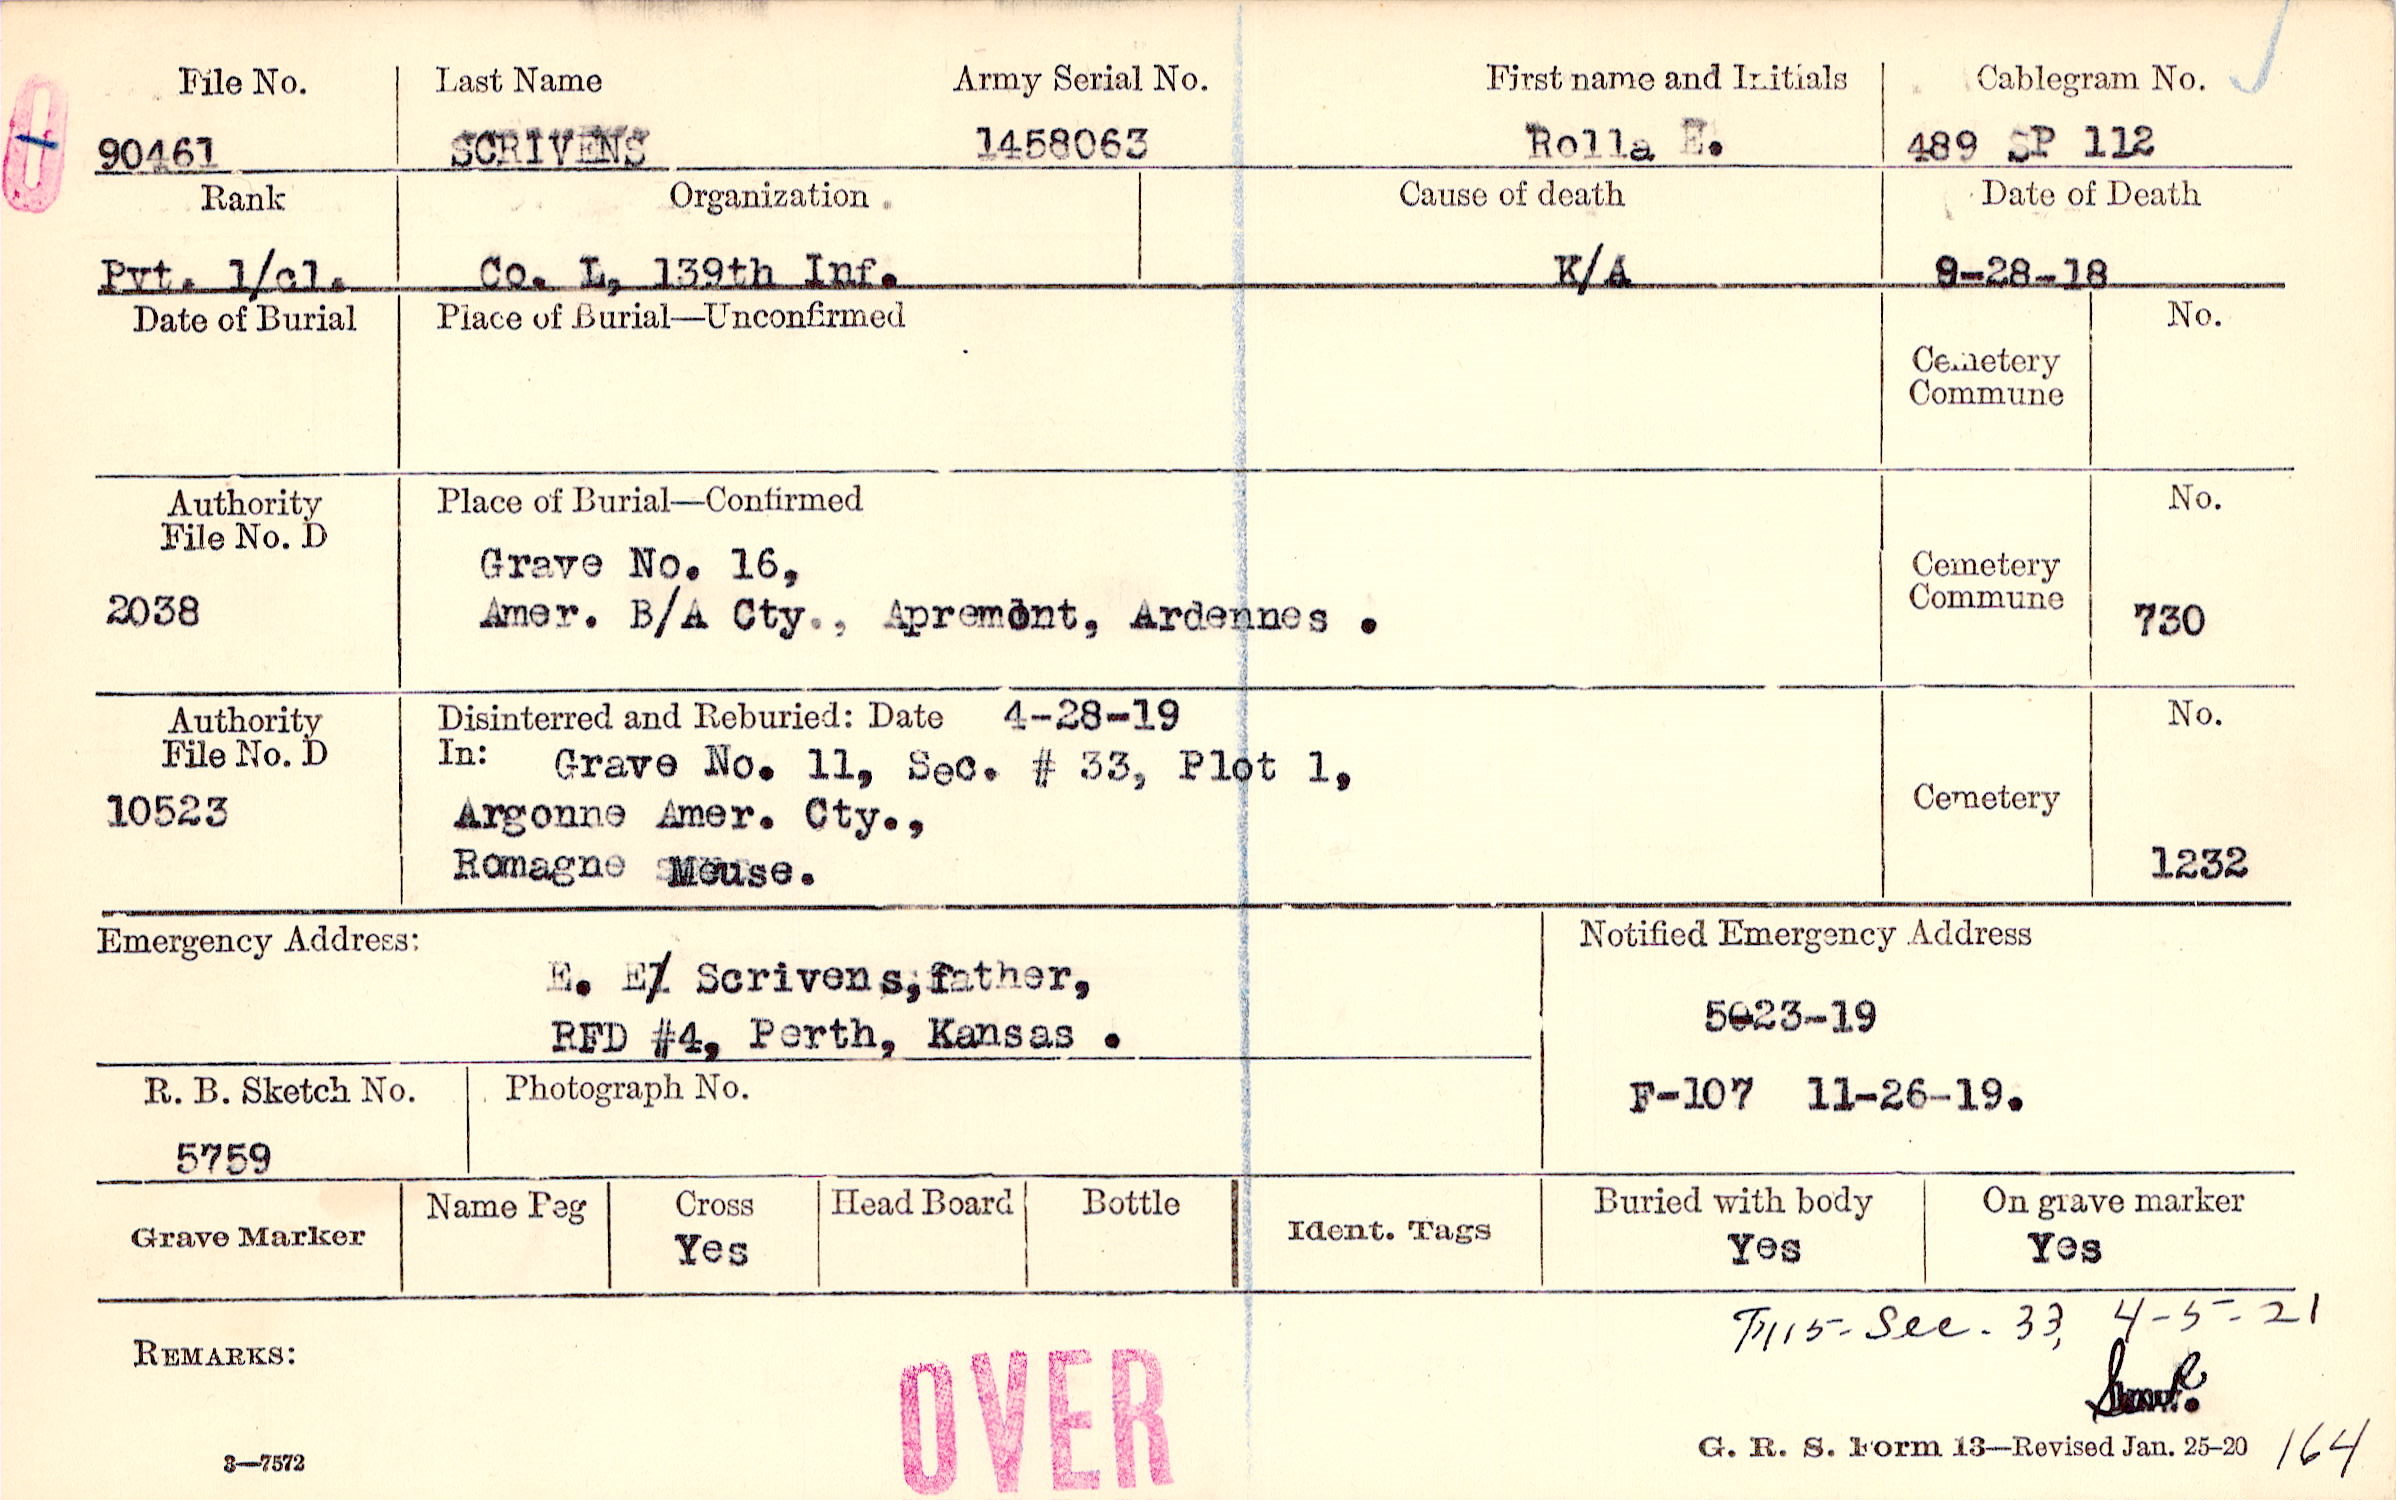 File No. Last Name Army Serial No. First name and Initials Cablegram No.
90461 SCRIVENS 1458063 Rolla E. 489 SP 112
Rank Organization Cause of death Date of Death
Pvt. 1/cl. Co. L, 139th Inf. K/A 9-28-18
Date of Burial Place of Burial—Unconfirmed No.
Cemetery
Commune
Authority Place of Burial—Confirmed No.
File No. D
Grave No. 16, Cemetery
2038 Amer. B/A Cty., Apremont, Ardennes . Commune 730
Authority Disinterred and Reburied: Date 4-28-19 No.
File No. D In: Grave No. 11, Sec. # 33, Plot 1,
10523 Argonne Amer. Cty., Cemetery
Romagne Meuse. 1232
Emergency Address: Notified Emergency Address
E. E/ Scrivens, father,
5-23-19
RFD #4, Perth, Kansas .
R. B. Sketch No. Photograph No. F-107 11-26-19.
5759
Grave Marker Name Peg Cross Head Board Bottle Ident. Tags Buried with body On grave marker
Yes Yes Yes
Sec. 33, 4-5-21
REMARKS:
OVER
3—7572 G. R. S. Form 13—Revised Jan. 25-20 164